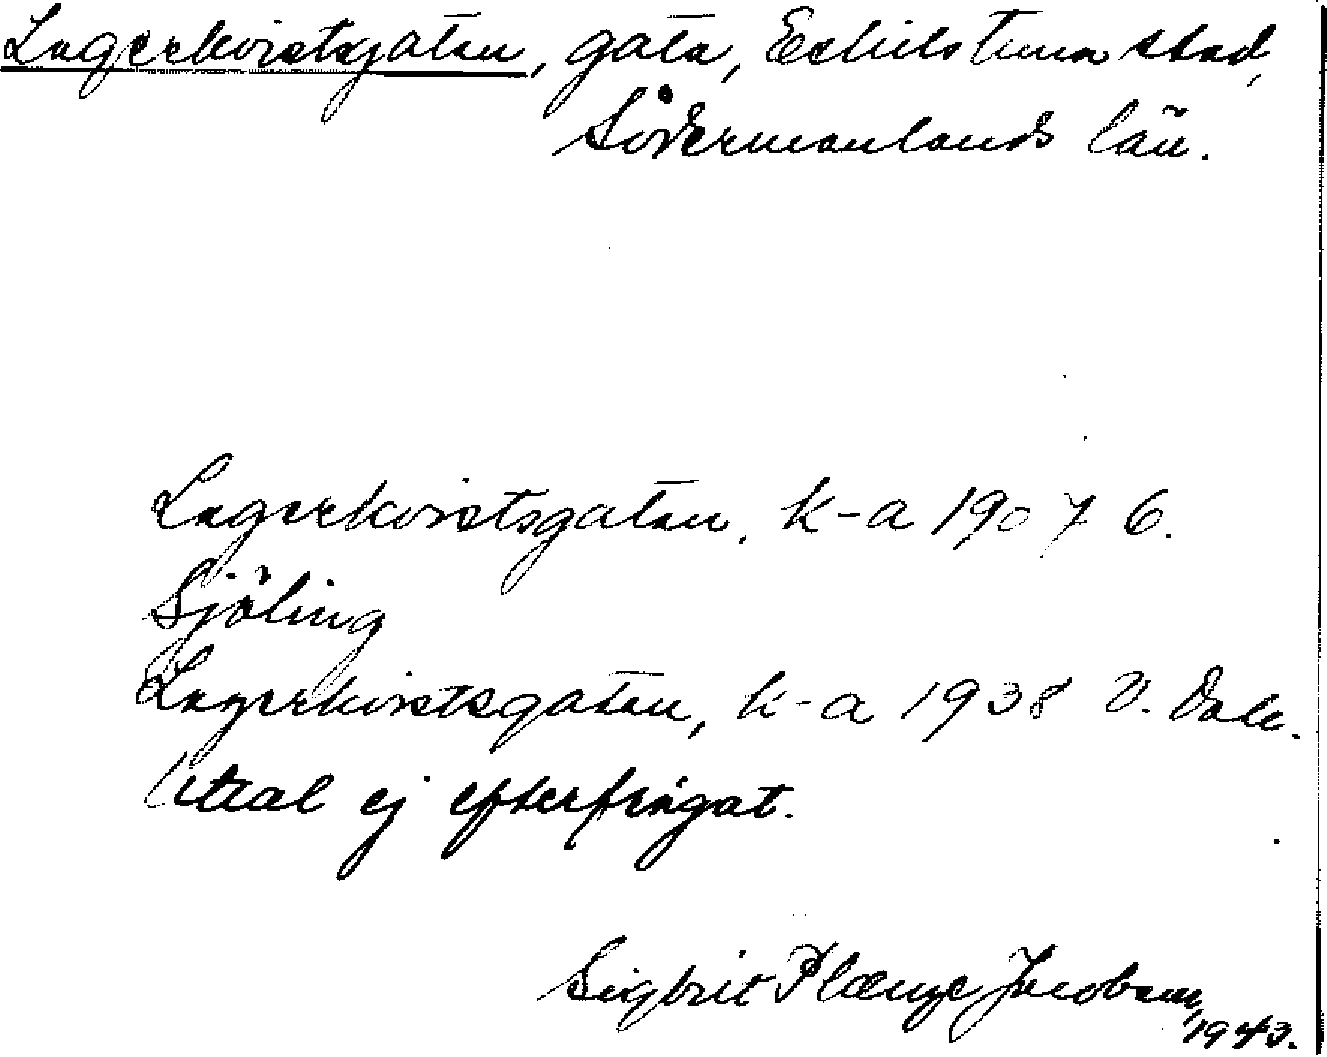 Lagerkvistsgatan, gata, Eskilstuna stad,
Södermanlands län.
Lagerkvistsgatan, k-a 1907 G.
Sjöling
Lagerkvistsgatan, k-a 1938 V. Dahl.
Uttal ej efterfrågat.
Sigbrit Plænge Jacobson,
1943.